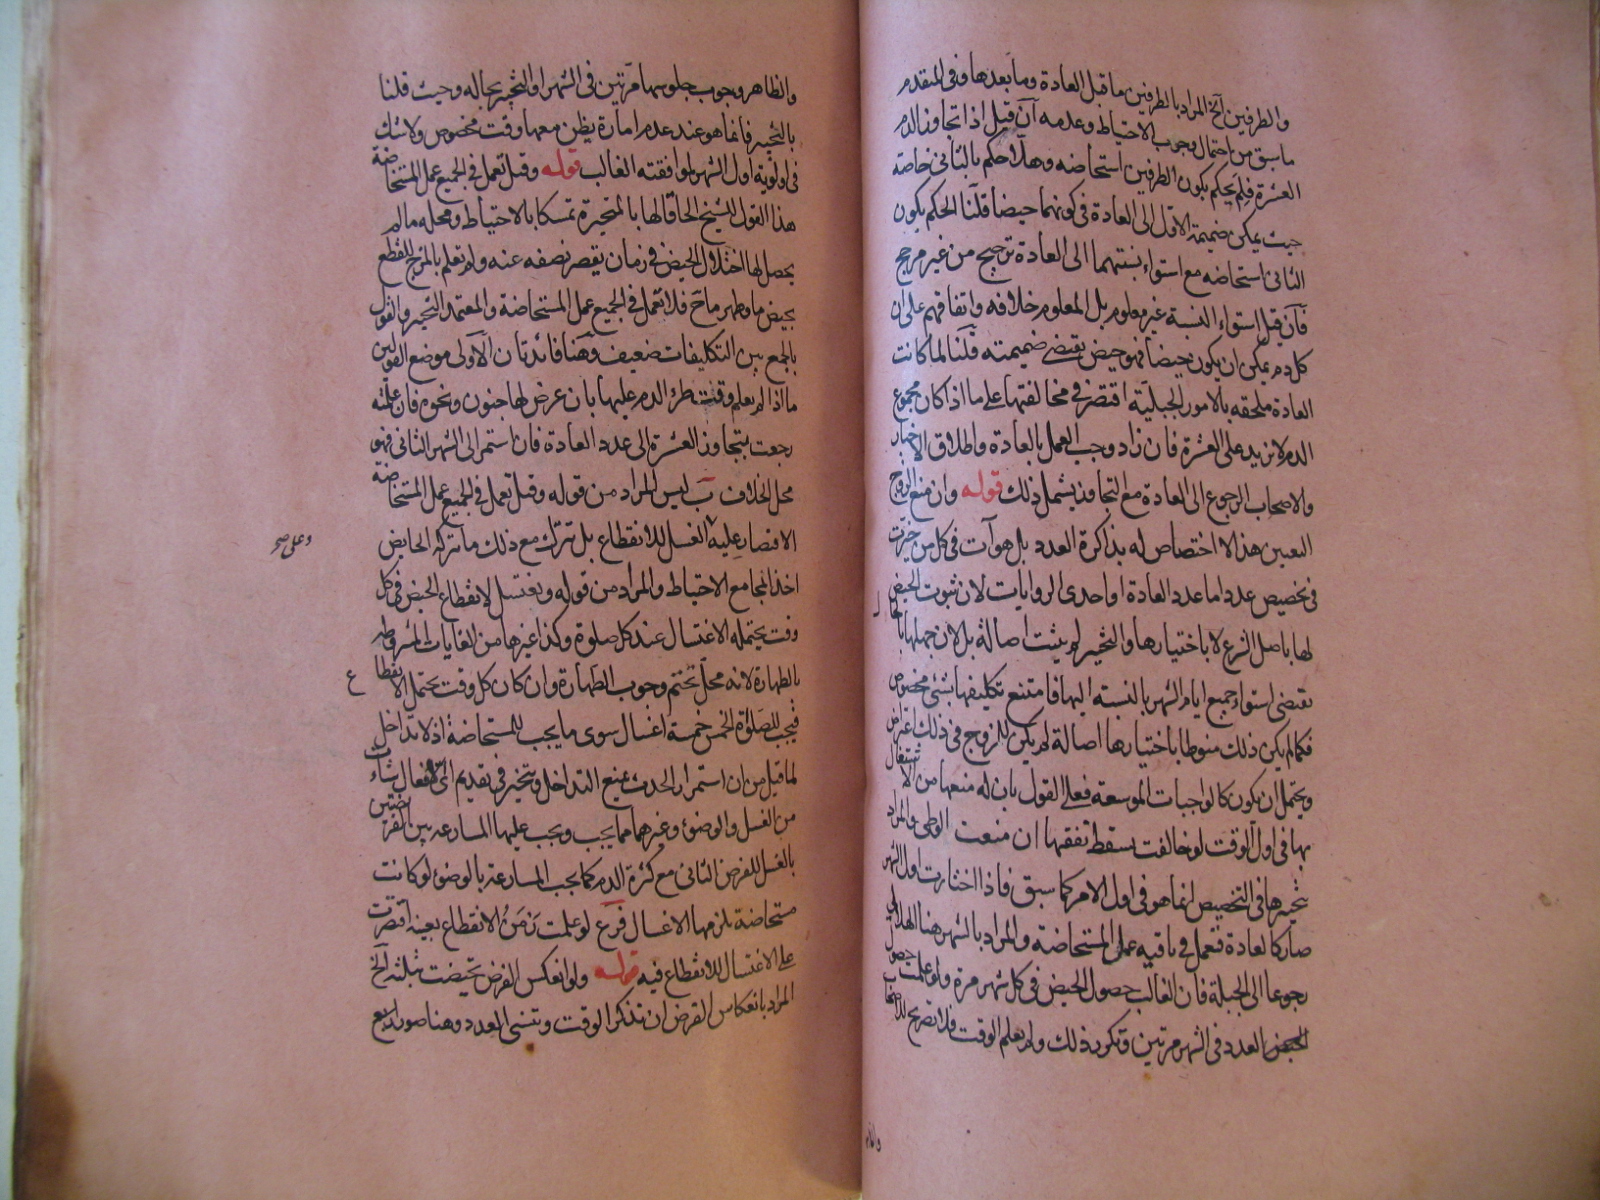 والطرفين آلخ المراد بالطرفين ما قبل العادة وما بعدها وفي المتقدم
ما سبق من احتمال وجوب الاحتياط وعدمه آن قيل اذا تجاوز الدم
العشرة فلم يحكم بكون الطرفين استحاضه وهلا حكم بالثاني خاصة
حيث يمكن ضميمة الاول الى العادة في كونهما حيضا قلنا الحكم بكون
الثاني استحاضه مع استواء نسبتهما الى العادة ترجيح من غير مرجح
فان قيل استواء النسبة غير معلوم بل المعلوم خلافه واتفاقهم على ان
كل دم يمكن ان يكون حيضا فهو حيض يقتضي ضميمته قلنا لما كانت
العادة ملحقه بالامور الجبلية اقتصر في مخالفتها على ما اذا كان مجموع
الدم لا يزيد على العشرة فان زاد وجب العمل بالعادة واطلاق الاخبار
والاصحاب الرجوع الى العادة مع التجاوز يشمل ذلك قوله وان منع الزوج
التعيين هذا لا اختصاص له بذاكرة العدد بل هو آت في كل من خيرت
في تخصيص عدد اما عدد العادة او احدى الروايات لان ثبوت الحيض
لها باصل الشرع لا باختيارها والتخيير لم يثبت اصالة بل لان جهلها بالحال
يقتضى استواء جميع ايام الشهر بالنسبه اليها فامتنع تكليفها بشئ مخصوص
فكما لم يكن ذلك منوطا باختيارها اصالة لم يكن للزوج في ذلك اعتراض
ويحتمل ان يكون كالواجبات الموسعة فعلى القول بان له منعها من الاشتغال
بها في اول الوقت لو خالفت يسقط نفقتها ان منعت الوطى والمراد
بتخيرها في التخصيص انما هو في اول الامر كما سبق فاذا اختارت اول الشهر
صار كالعادة فتعمل في باقيه عمل المستحاضة والمراد بالشهر هنا الهلالي
رجوعا الى الجبلة فان الغالب حصول الحيض في كل شهر مرة ولو علمت حصول
العدد في الشهر مرتين وتكرر ذلك ولم يعلم الوقت فلا تصريح للاصحاب
والظاهر
والظاهر وجوب جلوسها مرتين في الشهر والتخيير بحاله وحيث قلنا
بالتخيير فانما هو عند عدم امارة يظن معها وقت مخصوص ولا شك
في اولوية اول الشهر لموافقته الغالب قوله وقيل تعمل في الجميع عمل المستحاضة
هذا القول للشيخ الحاقا لها بالمتحيرة تمسكا بالاحتياط ومحله ما لم
يحصل لها اختلال الحيض في زمان يقصر نصفه عنه ولم تعلم بالمزج للقطع
بحيض ما وطهر ما ح فلا تعمل في الجميع عمل المستحاضة والمعتمد التخيير والقول
بالجمع بين التكليفات ضعيف وهنا فائدتان الاولى موضع القولين
ما اذا لم يعلم وقت طرء الدم عليها بان عرض لها جنون ونحوه فان علمته
رجعت بتجاوز العشرة الى عدد العادة فان استمر الى الشهر الثاني فهو
محل الخلاف ب ليس المراد من قوله وقيل تعمل في الجميع عمل المستحاضة
الاقتصار عليه الغسل للانقطاع بل تترك مع ذلك ما تتركه الحايض
وعلى صح
اخذا بمجامع الاحتياط والمراد من قوله وتغتسل لانقطاع الحيض في كل
وقت يحتمله الاغتسال عند كل صلوة وكذا غيرها من الغايات المشروطه
بالطهارة لانه محل تحتم وجوب الطهارة وان كان كل وقت يحتمل الانقطاع
فيجب للصلوة الخمس خمسة اغسال سوى ما يجب للمستحاضة اذ لا تداخل
لما قيل من ان استمرار الحدث يمنع التداخل ويتخير في تقديم اى الافعال شاءت
من الغسل والوضوء وغيرهما مما يجب ويجب عليها المسارعه بين الفرضين
بالغسل للفرض الثاني مع كثرة الدم كما يجب المسارعة بالوضوء لو كانت
مستحاضة يلزمها الاغسال فرع لو علمت زمن الانقطاع بعينه اقتصرت
على الاغتسال للانقطاع فيه قوله ولو انعكس الفرض تحيضت بثلثه آلخ
المراد بانعكاس الفرض ان تذكر الوقت وتنسى العدد وهنا صور اربع